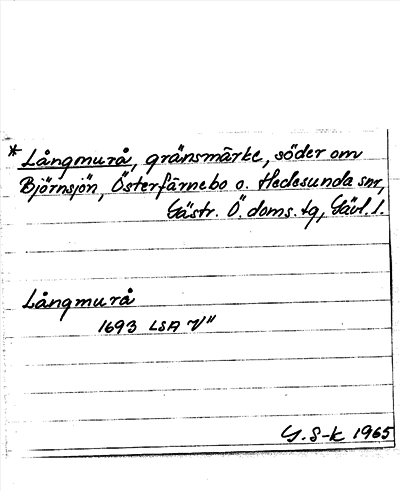 * Långmurå, gränsmärke, söder om
Björnsjön, Österfärnebo o. Hedesunda snr,
Gästr. Ö. doms. tg, Gävl. l.
Långmurå
1693 LSA V"
G. S-k 1965